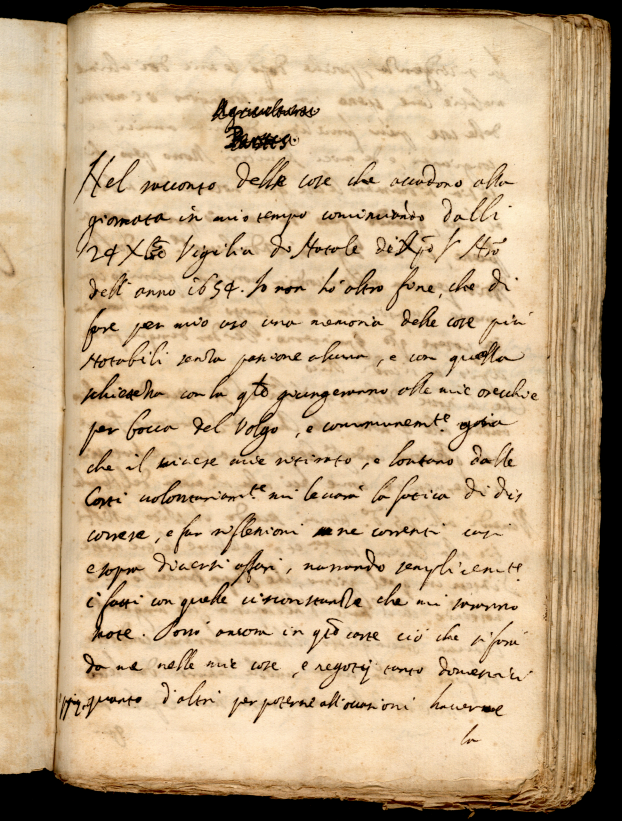 Nel racconto delle cose che accadono alla
giornata in mio tempo cominciando dalli
24 Xbre Vigilia di Natale di Xpo S Nro
dell'anno 1654. Io non hò altro fine, che di
fare per mio uso una memoria delle cose più
notabili senza passione alcuna, e con quella
schiettezza con la qle giungeranno alle mie orecchie
per bocca del Volgo, e communemte
che il vivere mio ritirato, e lontano dalle
Corti volontariamte mi levarà la fatica di dis
correre, e far riflessioni ne correnti casi
e sopra diversi affari, narrando semplicemte
i fatti con quelle circonstanze che mi saranno
note. Porrò ancora in qte carte ciò che si farà
da me nelle mie cose, e negotij tanto domestici
quanto d'altri per poterne all'occasioni haverne
la